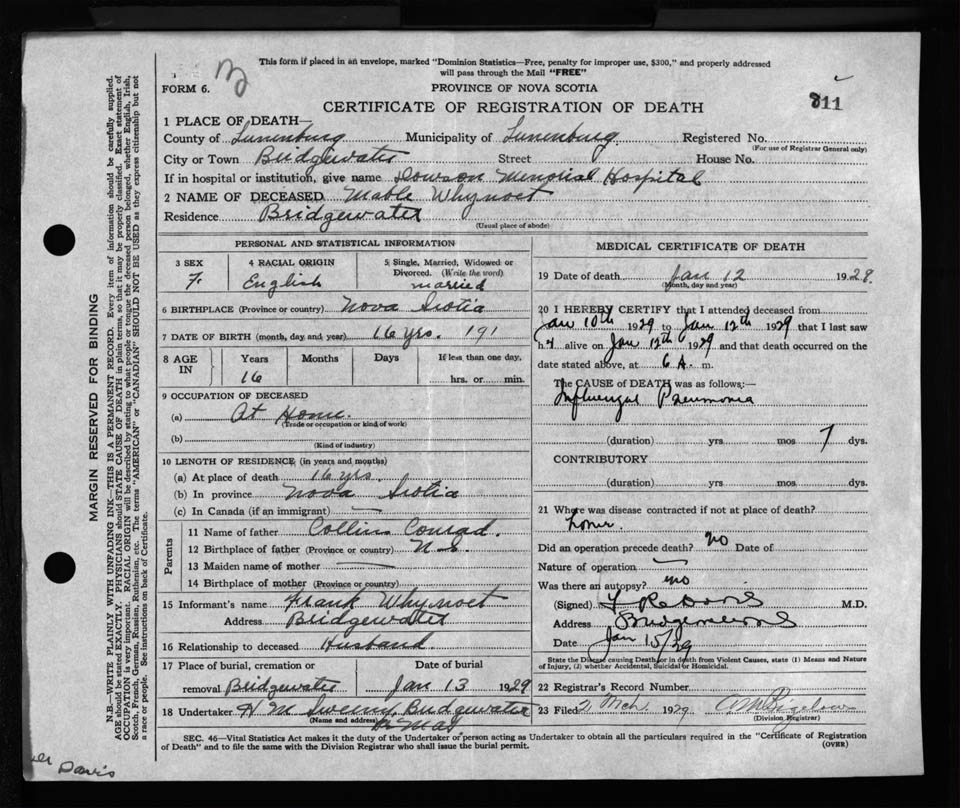 This form if placed in an envelope, marked "Dominion Statistics—Free, penalty for improper use, $300," and properly addressed
will pass through the Mail "FREE"
FORM 6.
PROVINCE OF NOVA SCOTIA
CERTIFICATE OF REGISTRATION OF DEATH
811
1 PLACE OF DEATH—
County of Lunenburg Municipality of Lunenburg Registered No.
(For use of Registrar General only)
City or Town Bridgewater Street House No.
If in hospital or institution, give name Dawson Memorial Hospital
2 NAME OF DECEASED Mable Whynot
Residence Bridgewater
(Usual place of abode)
PERSONAL AND STATISTICAL INFORMATION
3 SEX 4 RACIAL ORIGIN 5 Single, Married, Widowed or
Divorced. (Write the word)
F. English married
6 BIRTHPLACE (Province or country) Nova Scotia
7 DATE OF BIRTH (month, day and year) 16 yrs. 191
8 AGE IN Years Months Days If less than one day,
16 hrs. or min.
9 OCCUPATION OF DECEASED
(a) At Home.
(Trade or occupation or kind of work)
(b)
(Kind of industry)
10 LENGTH OF RESIDENCE (in years and months)
(a) At place of death 16 yrs.
(b) In province Nova Scotia
(c) In Canada (if an immigrant) —
Parents
11 Name of father Collins Conrad.
12 Birthplace of father (Province or country) N.S.
13 Maiden name of mother —
14 Birthplace of mother (Province or country)
15 Informant's name Frank Whynot
Address Bridgewater
16 Relationship to deceased Husband
17 Place of burial, cremation or Date of burial
removal Bridgewater Jan 13 1929
18 Undertaker H M Sweeny, Bridgewater
(Name and address)
MEDICAL CERTIFICATE OF DEATH
19 Date of death Jan 12 1928.
(Month, day and year)
20 I HEREBY CERTIFY that I attended deceased from
Jan 10th 1929 to Jan 12th 1929 that I last saw
alive on Jan 12th 1929 and that death occurred on the
date stated above, at 6 A. m.
The CAUSE OF DEATH was as follows:—
Influenzal Pneumonia
(duration) yrs mos 7 dys.
CONTRIBUTORY
(duration) yrs. mos dys.
21 Where was disease contracted if not at place of death?
home.
Did an operation precede death? no Date of
Nature of operation —
Was there an autopsy? no
(Signed) M.D.
Address Bridgewater
Date Jan 15/29
State the Disease causing Death, or in death from Violent Causes, state (1) Means and Nature
of Injury, (2) whether Accidental, Suicidal or Homicidal.
22 Registrar's Record Number
23 Filed 2 Mch. 1929
(Division Registrar)
SEC. 46—Vital Statistics Act makes it the duty of the Undertaker or person acting as Undertaker to obtain all the particulars required in the "Certificate of Registration
of Death" and to file the same with the Division Registrar who shall issue the burial permit. (OVER)
MARGIN RESERVED FOR BINDING
N.B.—WRITE PLAINLY WITH UNFADING INK—THIS IS A PERMANENT RECORD. Every item of information should be carefully supplied.
AGE should be stated EXACTLY. PHYSICIANS should STATE CAUSE OF DEATH in plain terms, so that it may be properly classified. Exact statement of
OCCUPATION is very important. RACIAL ORIGIN will be described by stating to what people or tongue the deceased person belonged, whether English, Irish,
Scotch, French, German, Russian, Ruthenian, etc. The terms "AMERICAN" or "CANADIAN" SHOULD NOT BE USED as they express citizenship but not
a race or people. See instructions on back of Certificate.
Davis